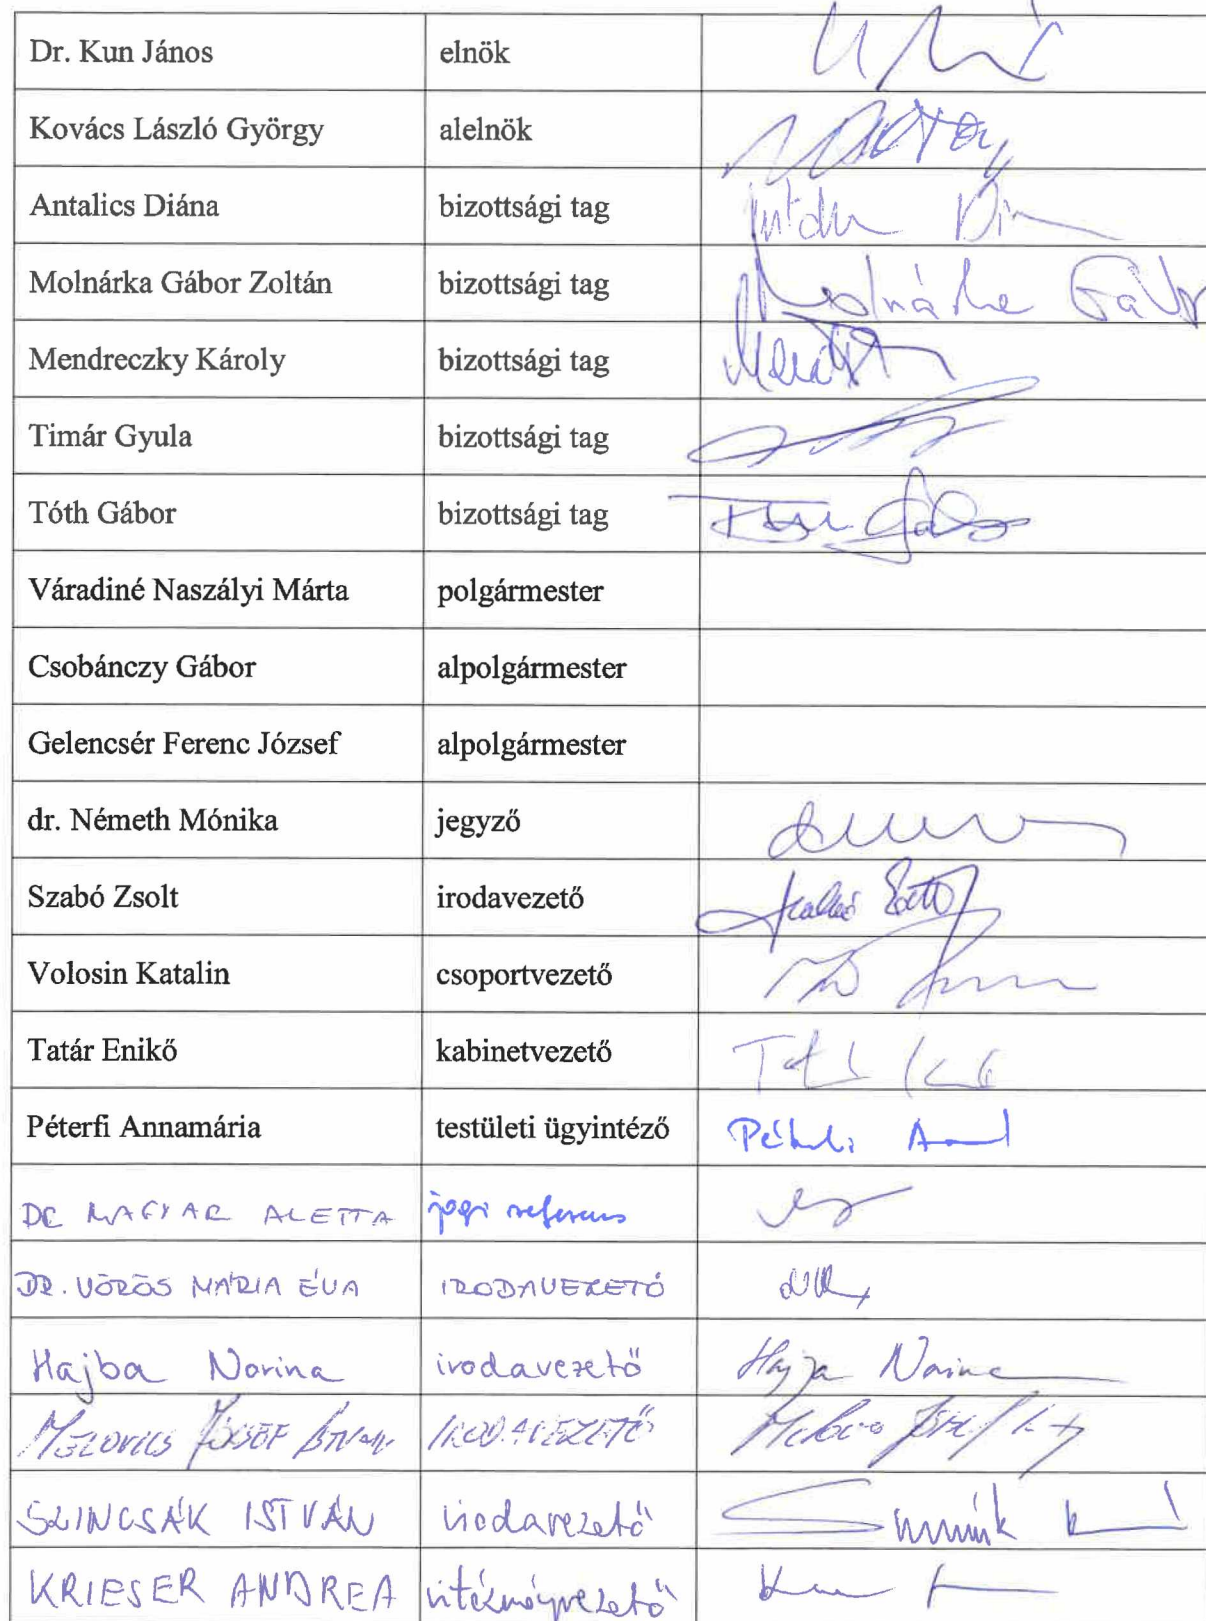 Dr. Kun János elnök
Kovács László György alelnök
Antalics Diána bizottsági tag
Molnárka Gábor Zoltán bizottsági tag Molnárka Gábor
Mendreczky Károly bizottsági tag
Timár Gyula bizottsági tag
Tóth Gábor bizottsági tag Tóth Gábor
Váradiné Naszályi Márta polgármester
Csobánczy Gábor alpolgármester
Gelencsér Ferenc József alpolgármester
dr. Németh Mónika jegyző
Szabó Zsolt irodavezető Szabó Zsolt
Volosin Katalin csoportvezető
Tatár Enikő kabinetvezető
Péterfi Annamária testületi ügyintéző
DR MAGYAR ALETTA jogi referens
DR. VÖRÖS MÁRIA ÉVA IRODAVEZETŐ
Hajba Norina irodavezető Hajba Norina
JÓZSEF ISTVÁN IRODAVEZETŐ
SZINCSÁK ISTVÁN irodavezető
KRIESER ANDREA intézményvezető